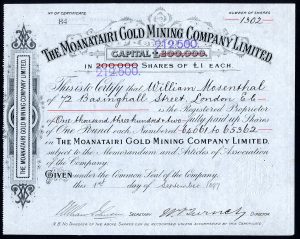 Nº OF CERTIFICATE
84
NUMBER OF SHARES
1302
THE MOANATAIRI GOLD MINING COMPANY LIMITED.
219,500.
CAPITAL £200,000.
IN 200,000 SHARES OF £1 EACH.
219,500.
This is to Certify that William Mosenthal
of 72 Basinghall Street, London E.C.
is the Registered Proprietor of
One thousand three hundred & two fully paid up Shares
of One Pound each Numbered 64061 to 65362
in THE MOANATAIRI GOLD MINING COMPANY LIMITED,
subject to the Memorandum and Articles of Association
of the Company.
GIVEN under the Common Seal of the Company.
this 1st day of September 1897
SECRETARY
DIRECTOR
N.B. No Transfer of the above Shares can be registered unless accompanied by this Certificate.
THE MOANATAIRI GOLD MINING COMPANY LIMITED